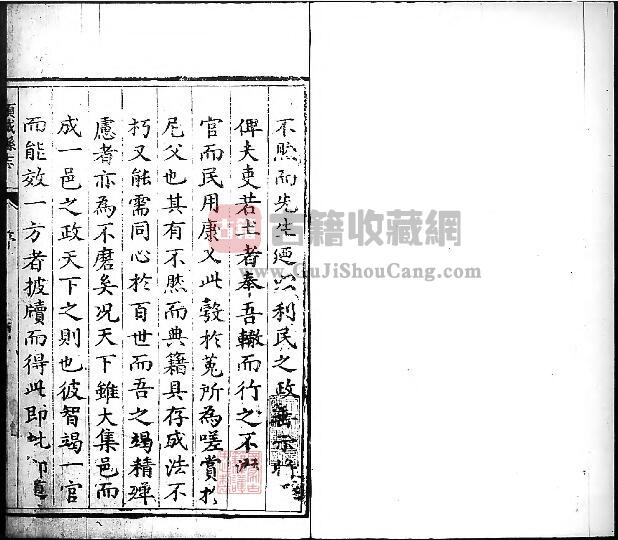 不然而先生迺以利民之政
俾夫吏若士者奉吾轍而行之不
官而民用康乂此敎於蒐所為嗟賞
尼父也其有不然而典籍具存成法不
朽又能需同心於百世而吾之竭精殫
慮者亦為不磨矣况天下雖大集邑而
成一邑之政天下之則也彼智竭一官
而能效一方者披牘而得此即
項城縣志
古籍收藏网
www.GuJiShouCang.com